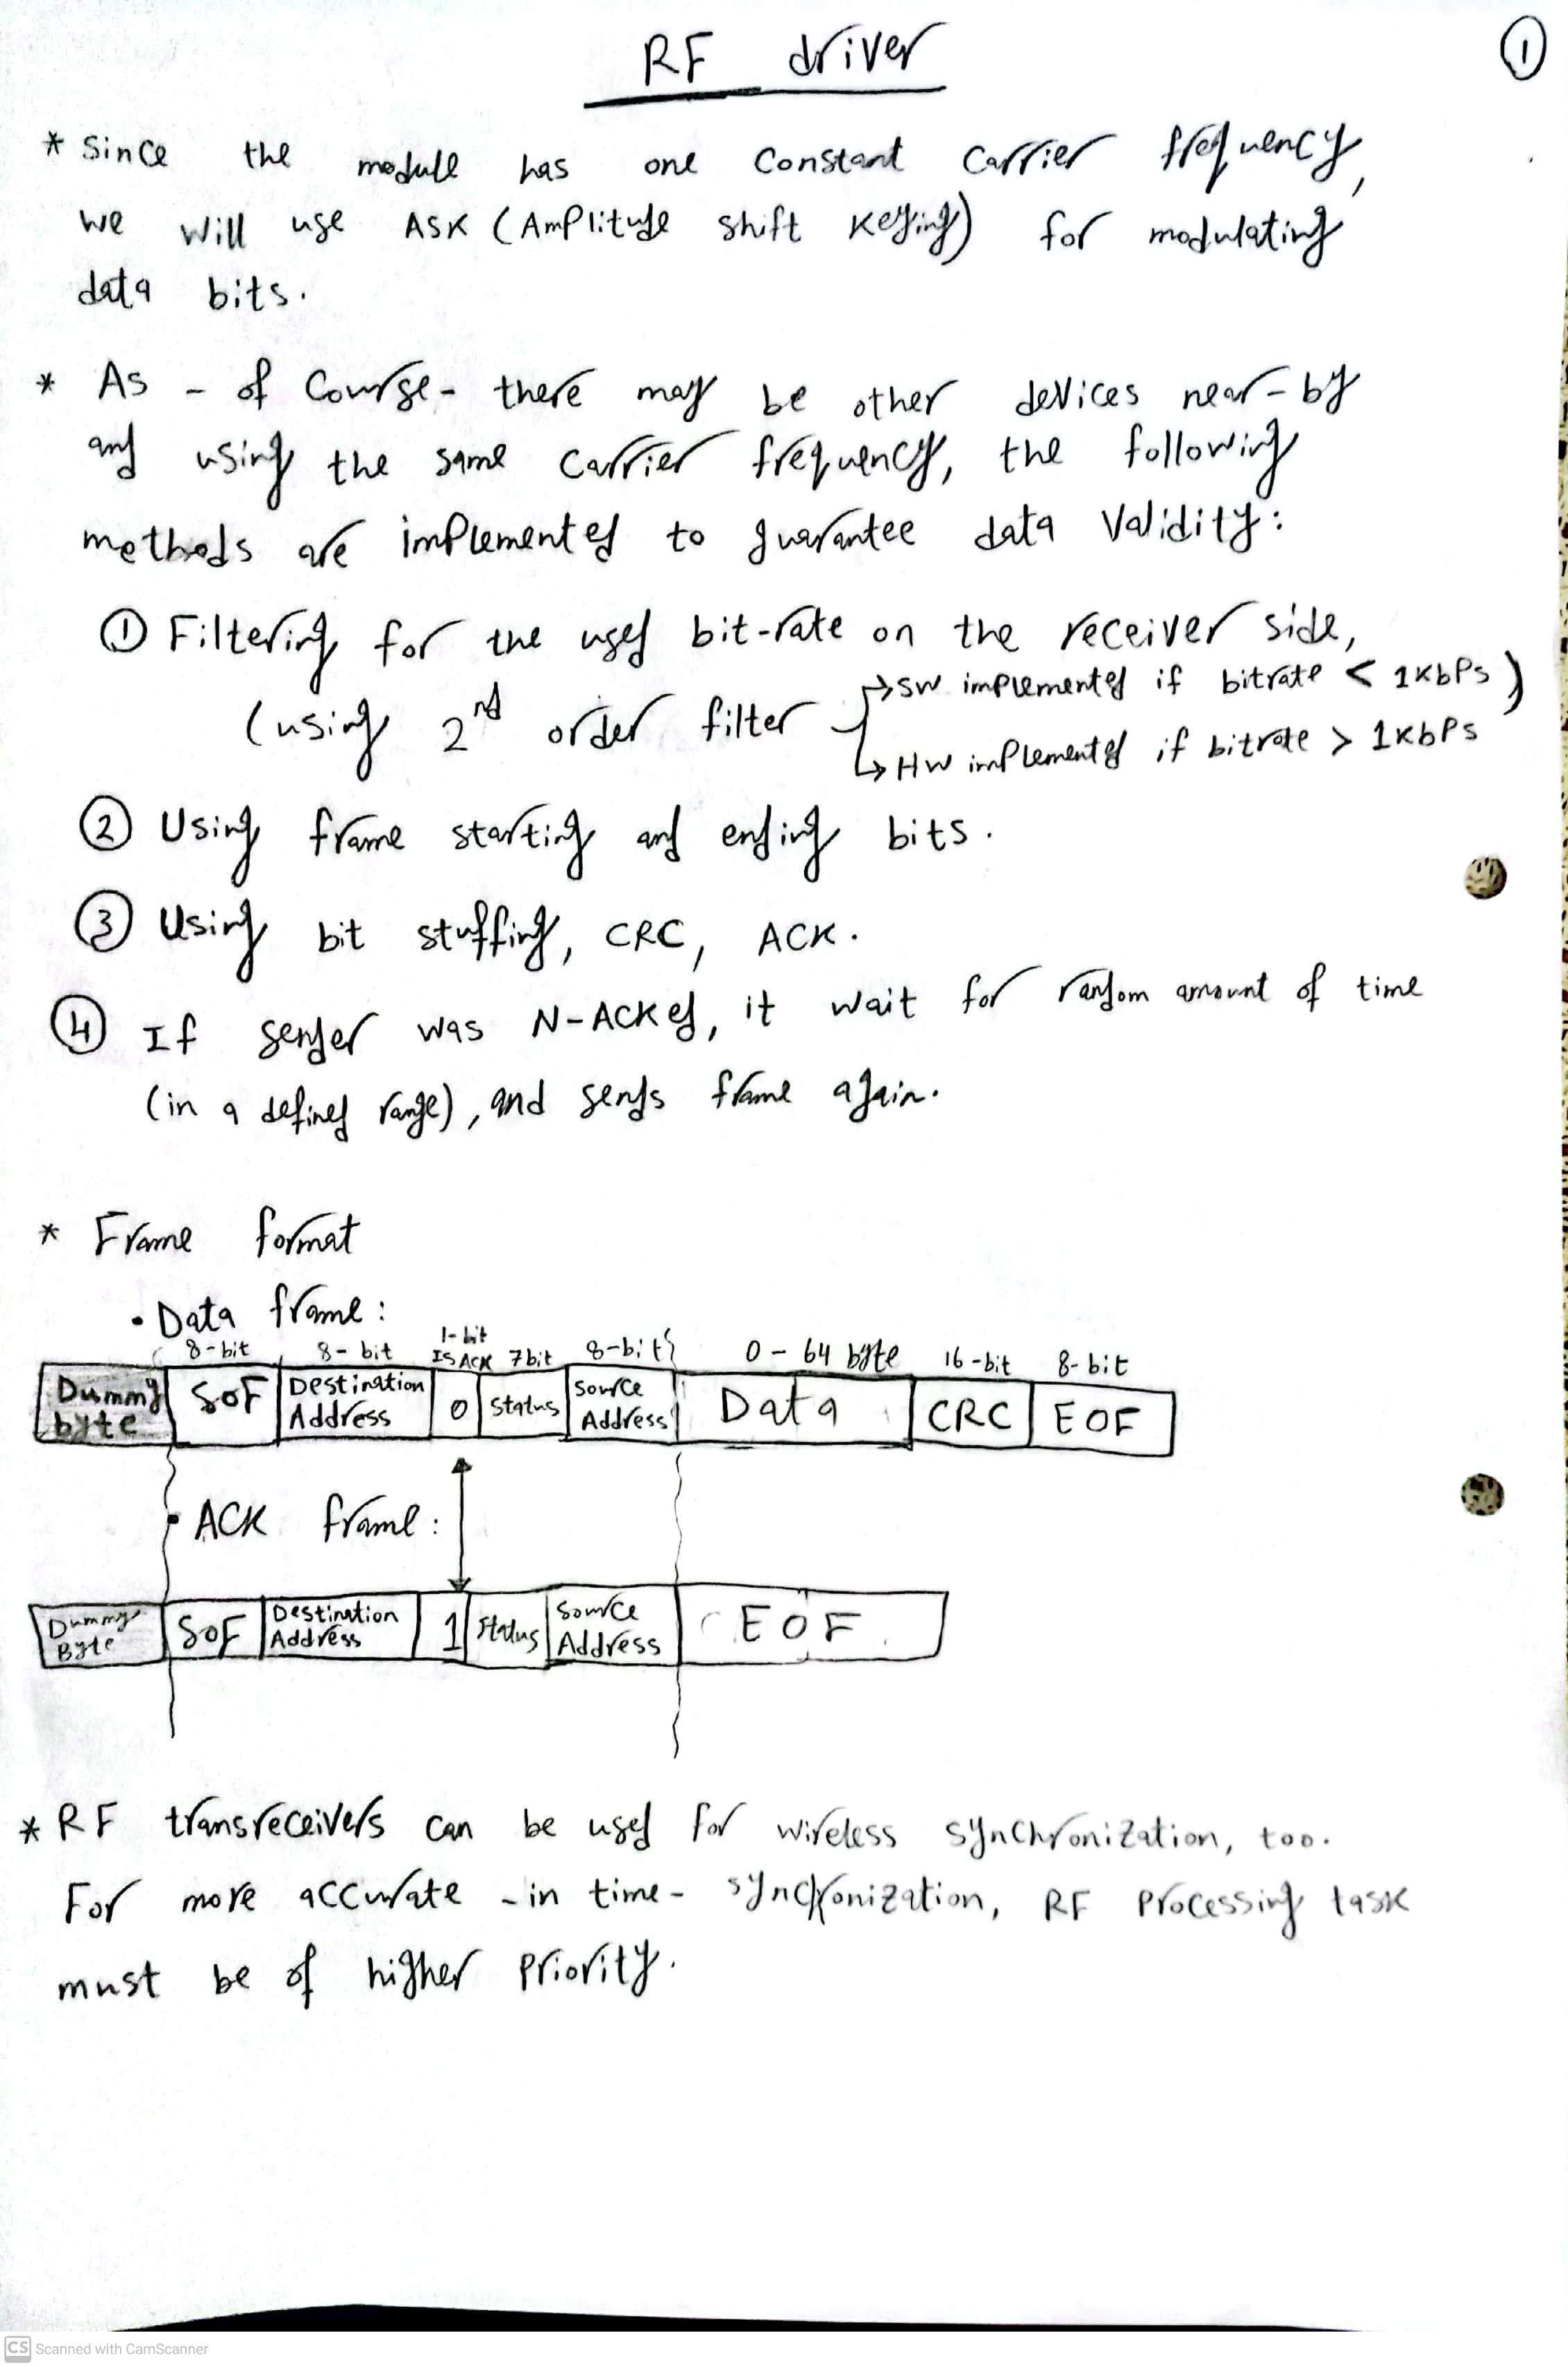 RF driver
1
* Since the module has one constant carrier frequency,
we will use ASK (Amplitude shift keying) for modulating
data bits.
* As - of course - there may be other devices near-by
and using the same carrier frequency, the following
methods are implemented to guarantee data validity:
1 Filtering for the used bit-rate on the receiver side,
(using 2nd order filter → SW implemented if bitrate < 1kbps)
→ HW implemented if bitrate > 1kbps
2 Using frame starting and ending bits.
3 Using bit stuffing, CRC, ACK.
4 If sender was N-ACKed, it wait for random amount of time
(in a defined range), and sends frame again.
* Frame format
• Data frame:
8-bit 8-bit 1-bit IS ACK 7bit 8-bit 0 - 64 byte 16-bit 8-bit
Dummy byte SOF Destination Address 0 Status Source Address Data CRC EOF
• ACK frame:
Dummy Byte SOF Destination Address 1 Status Source Address EOF
* RF transreceivers can be used for wireless synchronization, too.
For more accurate - in time - synchronization, RF processing task
must be of higher priority.
CS Scanned with CamScanner